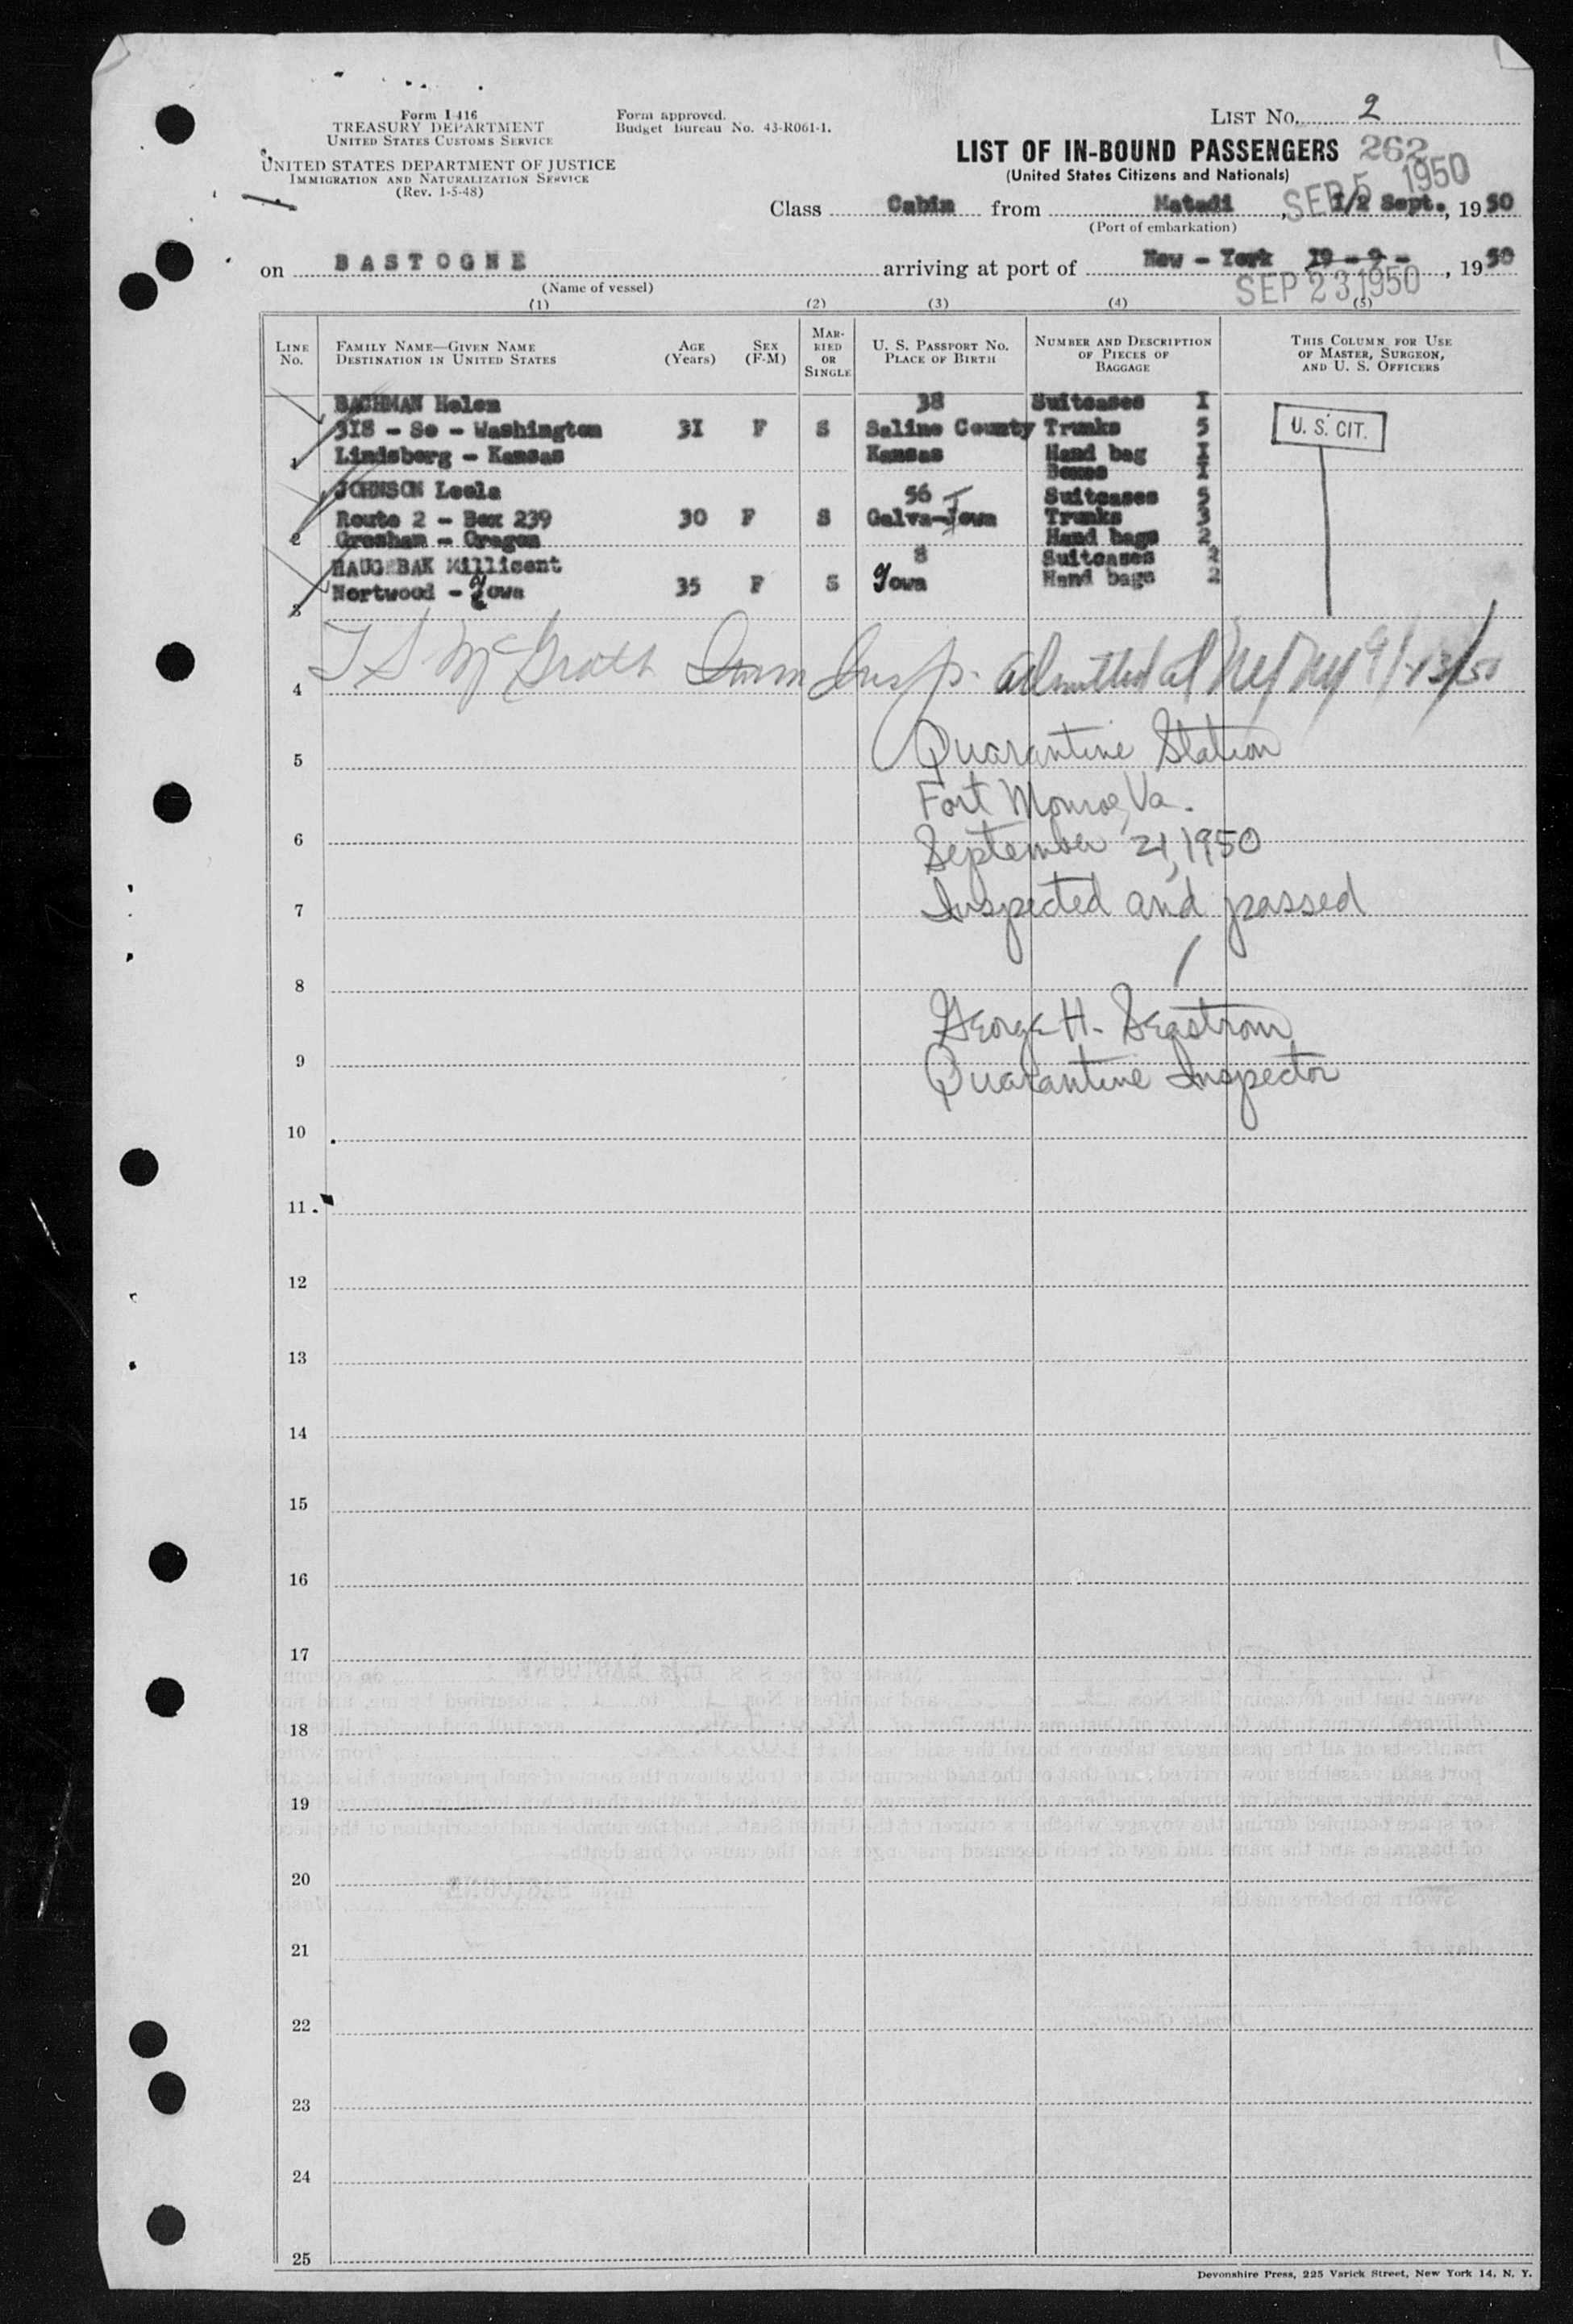 Form I-416
TREASURY DEPARTMENT
UNITED STATES CUSTOMS SERVICE
UNITED STATES DEPARTMENT OF JUSTICE
IMMIGRATION AND NATURALIZATION SERVICE
(Rev. 1-5-48)
Form approved.
Budget Bureau No. 43-R061-1.
LIST No. 2
LIST OF IN-BOUND PASSENGERS 262
(United States Citizens and Nationals)
SEP 5 1950
Class Cabin from Matadi, 1/2 Sept., 1950
(Port of embarkation)
on BASTOGNE arriving at port of New - York 19 - 9 -, 1950
(Name of vessel)
SEP 23 1950
(1) (2) (3) (4) (5)
LINE No.
FAMILY NAME—GIVEN NAME
DESTINATION IN UNITED STATES
AGE (Years)
SEX (F-M)
MARRIED OR SINGLE
U. S. PASSPORT NO.
PLACE OF BIRTH
NUMBER AND DESCRIPTION OF PIECES OF BAGGAGE
THIS COLUMN FOR USE OF MASTER, SURGEON, AND U. S. OFFICERS
BACHMAN Helen 38 Suitcases I
318 - So - Washington 3I F S Saline County Trunks 5 U. S. CIT.
1 Lindsborg - Kansas Kansas Hand bag I
Boxes I
JOHNSON Leola 56 Suitcases 5
Route 2 - Box 239 30 F S Galva-Iowa Trunks 3
2 Gresham - Oregon Hand bags 2
HAUGEBAK Millicent 8 Suitcases 2
Nortwood - Iowa 35 F S Iowa Hand bags 2
3
4 T S McGrath Imm Insp. admitted at NY NY 9/23/50
5 Quarantine Station
Fort Monroe, Va.
6 September 21, 1950
7 Inspected and passed
8
George H. Seastrom
9 Quarantine Inspector
10
11
12
13
14
15
16
17
18
19
20
21
22
23
24
25
Devonshire Press, 225 Varick Street, New York 14, N. Y.